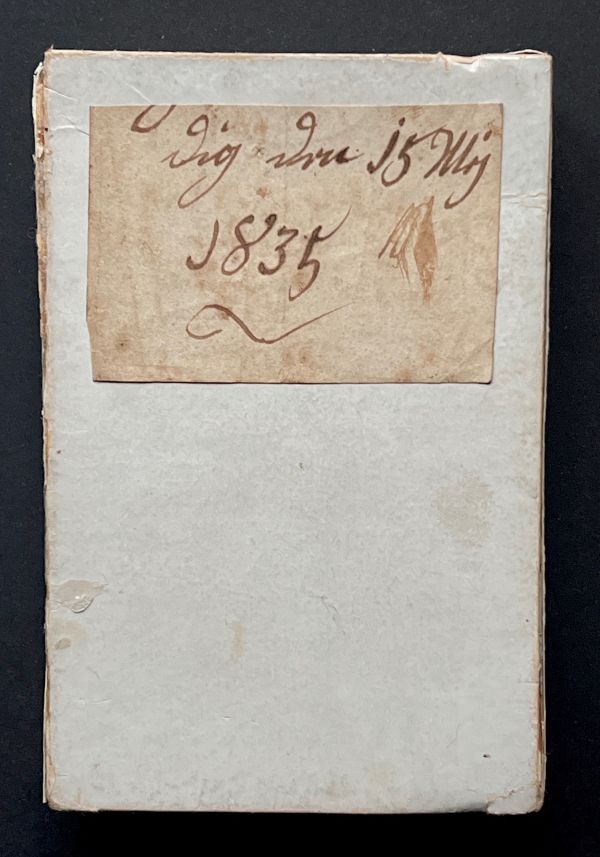 dig den 15 Maj
1835